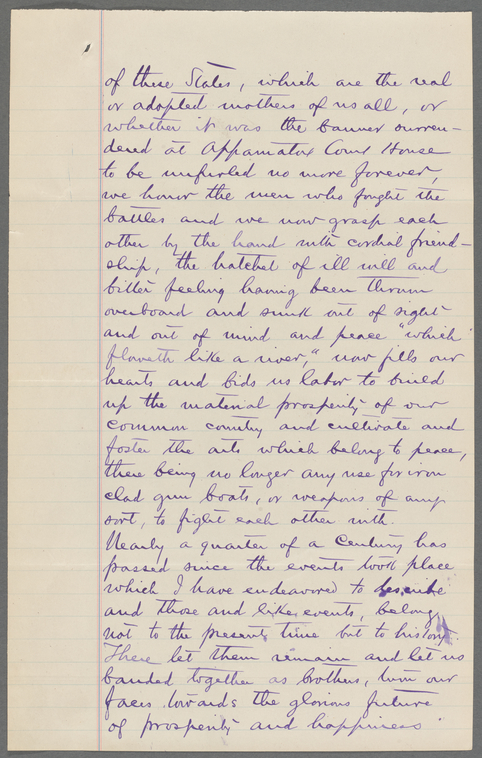 of these States, which are the real
or adopted mothers of us all, or
whether it was the banner surren-
dered at Appamatox Court House
to be unfurled no more forever,
we honor the men who fought the
battles and we now grasp each
other by the hand with cordial friend-
ship, the hatchet of ill will and
bitter feeling having been thrown
overboard and sunk out of sight
and out of mind and peace "which
floweth like a river," now fills our
hearts and bids us labor to build
up the material prosperity of our
common country and cultivate and
foster the arts which belong to peace,
there being no longer any use for iron
clad gun boats, or weapons of any
sort, to fight each other with.
Nearly a quarter of a Century has
passed since the events took place
which I have endeavored to describe
and those and like events, belong
not to the present time but to history
There let them remain and let us
banded together as brothers, turn our
faces towards the glorious future
of prosperity and happiness